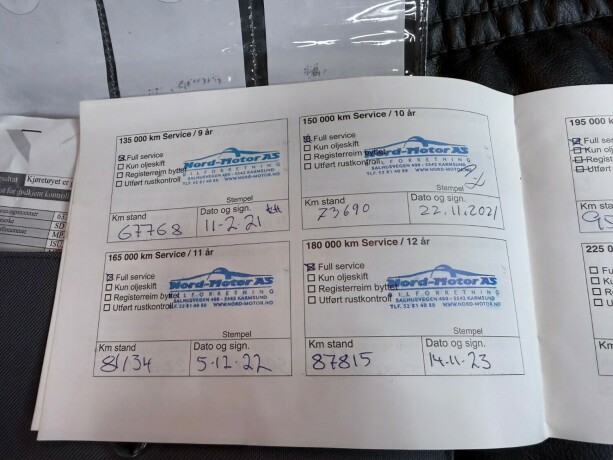 135 000 km Service / 9 år
Full service
Kun oljeskift
Registerreim byttet
Utført rustkontroll
Nord-Motor AS
BILFORRETNING
SALHUSVEGEN 400 - 5542 KARMSUND
TLF. 52 81 40 80 WWW.NORD-MOTOR.NO
Stempel
Km stand
67768
Dato og sign.
11-2.21
150 000 km Service / 10 år
Full service
Kun oljeskift
Registerreim byttet
Utført rustkontroll
Nord-Motor AS
BILFORRETNING
SALHUSVEGEN 400 - 5542 KARMSUND
TLF. 52 81 40 80 WWW.NORD-MOTOR.NO
Stempel
Km stand
73690
Dato og sign.
22.11.2021
165 000 km Service / 11 år
Full service
Kun oljeskift
Registerreim byttet
Utført rustkontroll
Nord-Motor AS
BILFORRETNING
SALHUSVEGEN 400 - 5542 KARMSUND
TLF. 52 81 40 80 WWW.NORD-MOTOR.NO
Stempel
Km stand
81134
Dato og sign.
5-12-22
180 000 km Service / 12 år
Full service
Kun oljeskift
Registerreim byttet
Utført rustkontroll
Nord-Motor AS
BILFORRETNING
SALHUSVEGEN 400 - 5542 KARMSUND
TLF. 52 81 40 80 WWW.NORD-MOTOR.NO
Stempel
Km stand
87815
Dato og sign.
14-11-23
195 000 k
Full servic
Kun oljes
Km stand
225 0
Kjøretøyet er